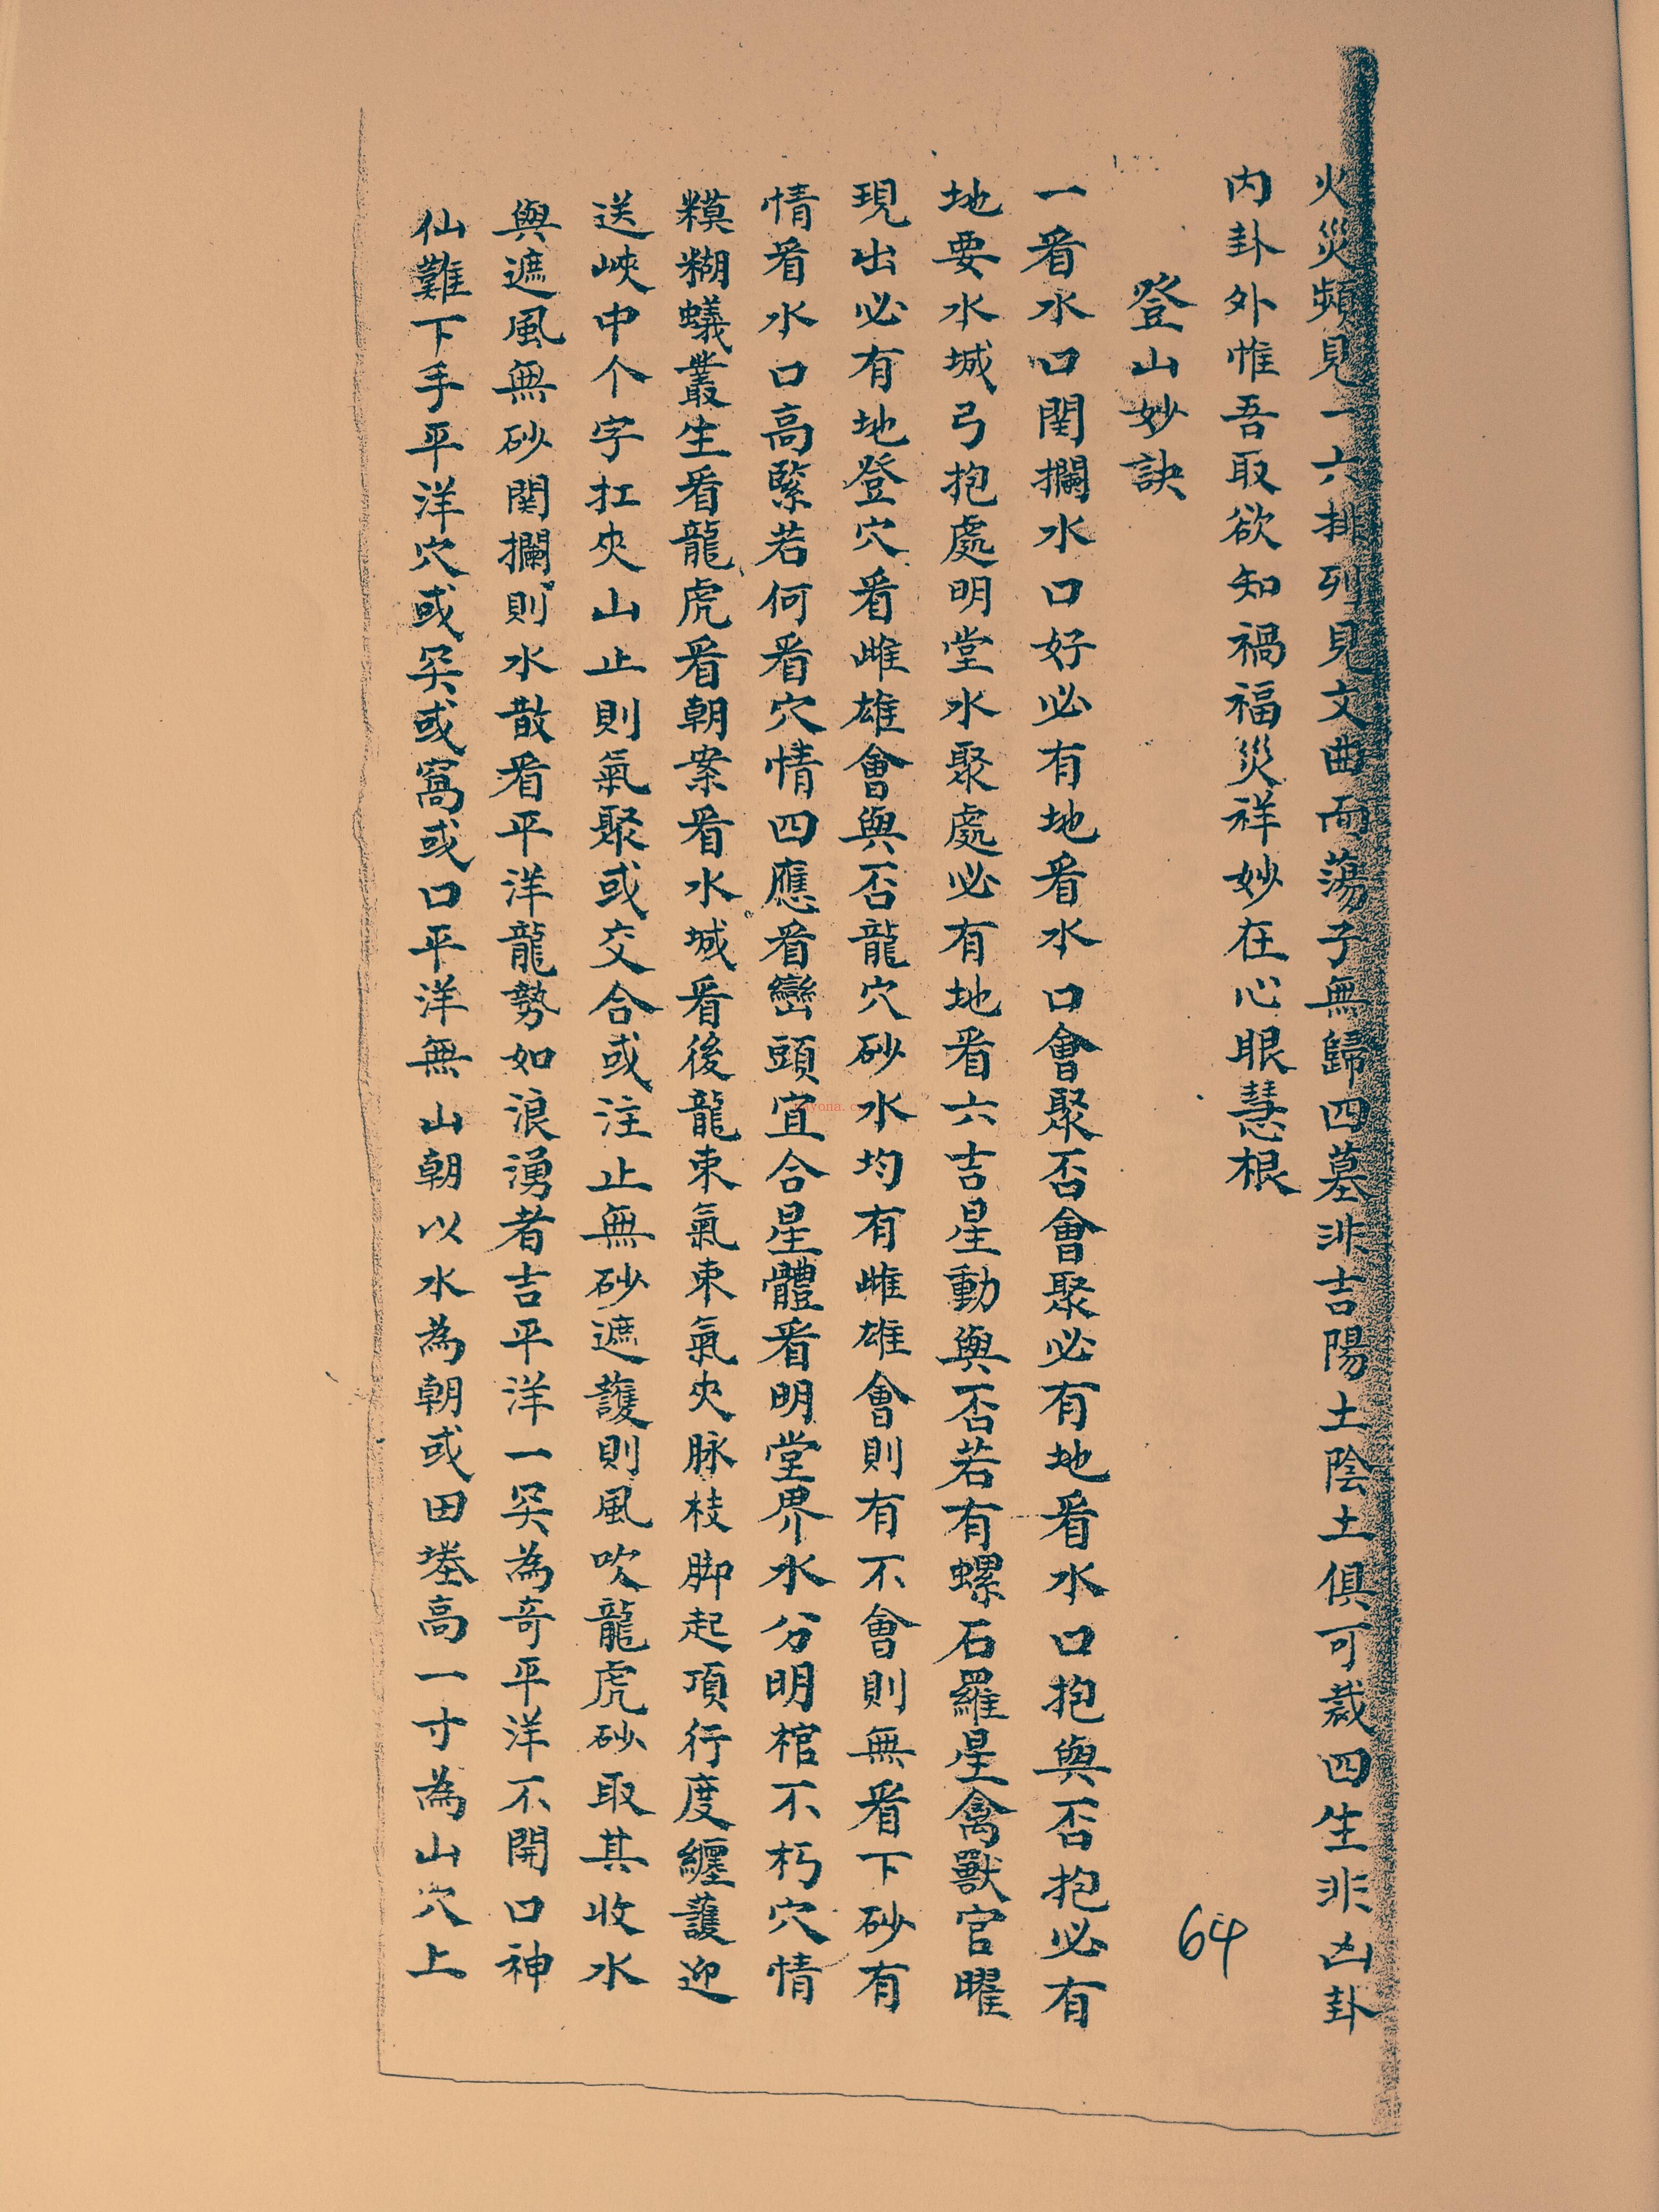 火災頻見一六排列見文曲而蕩子無歸四墓非吉陽土陰土俱可裁四生非凶卦
内卦外惟吾取欲知禍福災祥妙在心眼慧根
登山妙訣
一看水口関攔水口好必有地看水口會聚否會聚必有地看水口抱與否抱必有
地要水城弓抱處明堂水聚處必有地看六吉星動與否若有螺石羅星禽獸官曜
現出必有地登穴看雌雄會與否龍穴砂水均有雌雄會則有不會則無看下砂有
情看水口高緊若何看穴情四應看巒頭宜合星體看明堂界水分明棺不朽穴情
糢糊蟻叢生看龍虎看朝案看水城看後龍束氣束氣夾脉枝脚起項行度纏護迎
送峽中个字扛夾山止則氣聚或交合或注止無砂遮護則風吹龍虎砂取其收水
與遮風無砂関攔則水散看平洋龍勢如浪湧者吉平洋一突為奇平洋不開口神
仙難下手平洋穴或突或窩或口平洋無山朝以水為朝或田塍高一寸為山穴上
64